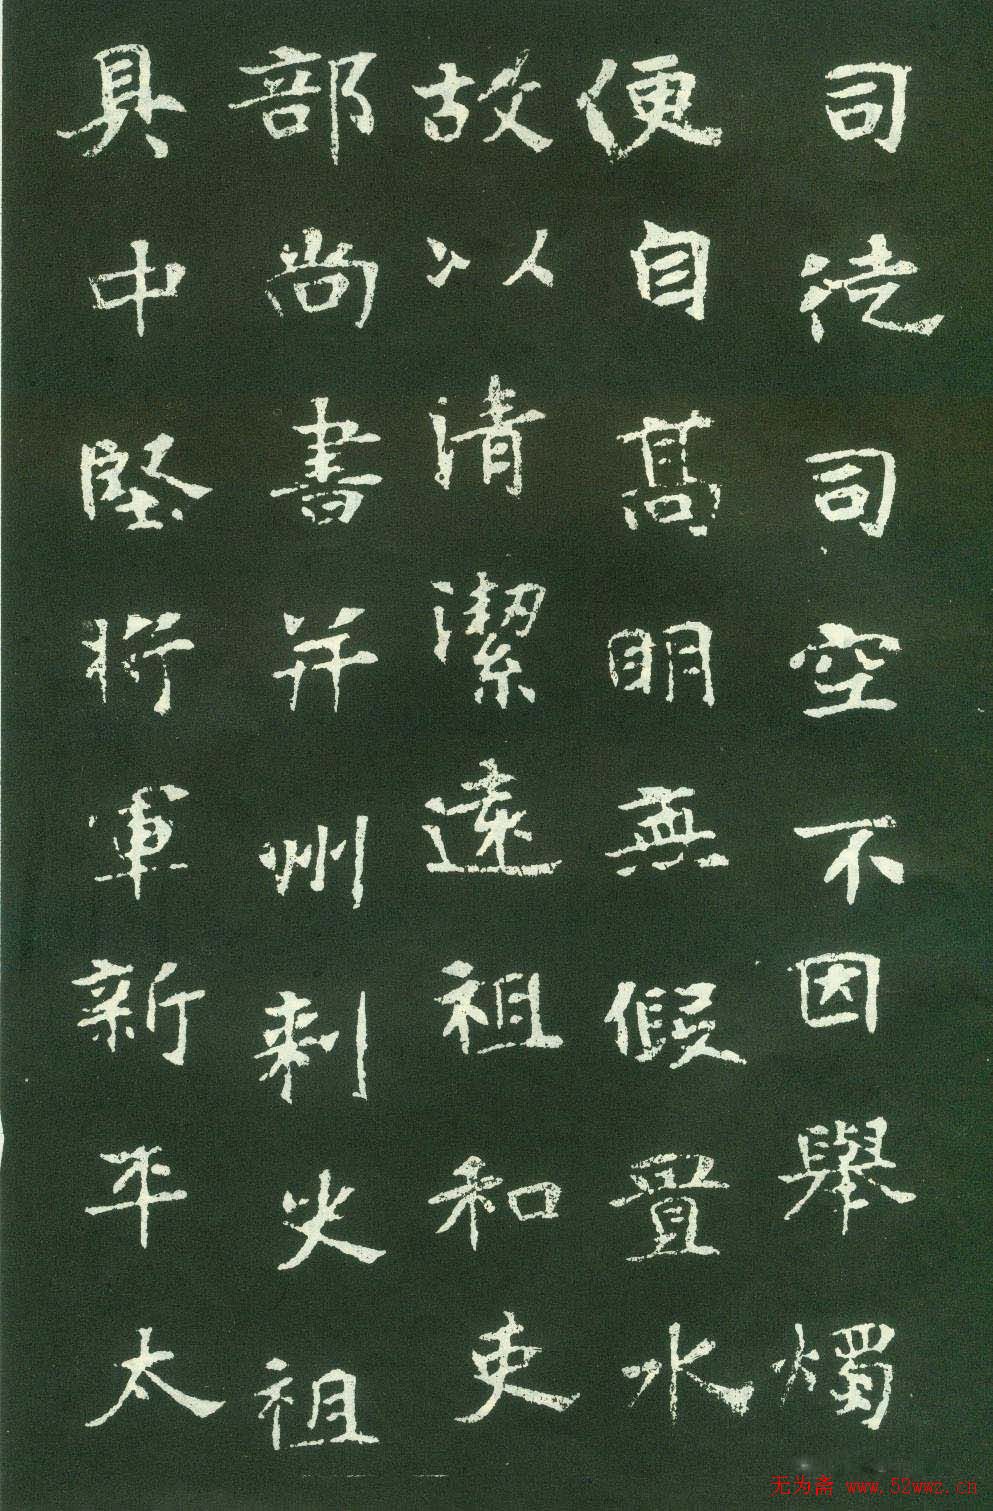 司徒司空不因舉燭
便自髙明無假置水
故以清潔遠祖和吏
部尚書并州刺史祖
具中堅將軍新平太
无为斋 www.52wwz.cn